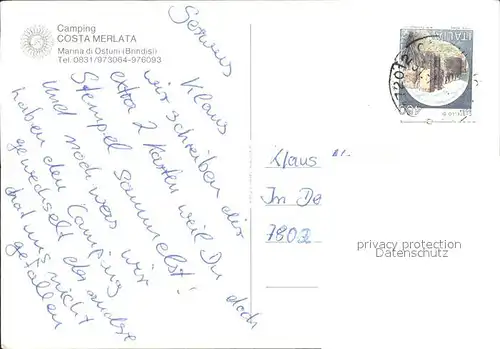 Camping
COSTA MERLATA
Marina di Ostuni (Brindisi)
Tel. 0831/973064-976093
Servus Klaus
wir schreiben dir
extra 2 Karten weil Du doch
Stempel sammelst!
Und noch was wir
haben den Camping
gewechselt der andere
hat uns nicht
gefallen
ITALIA
Klaus
In De
7802
privacy protection
Datenschutz